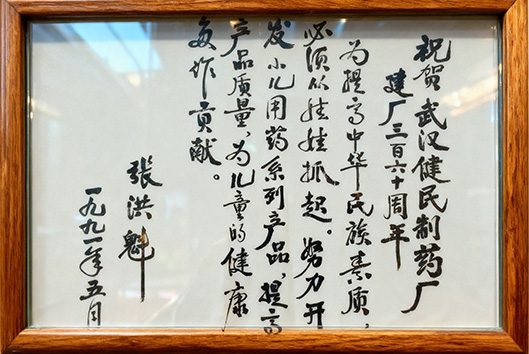 祝贺武汉健民制药厂
建厂三百六十周年
为提高中华民族素质，
必须从娃娃抓起。努力开
发小儿用药系列产品，提高
产品质量，为儿童的健康
多作贡献。
张洪魁
一九九一年五月